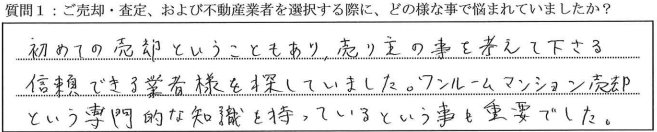 質問1：ご売却・査定、および不動産業者を選択する際に、どの様な事で悩まれていましたか？
初めての売却ということもあり、売り主の事を考えて下さる
信頼できる業者様を探していました。ワンルームマンション売却
という専門的な知識を持っているという事も重要でした。